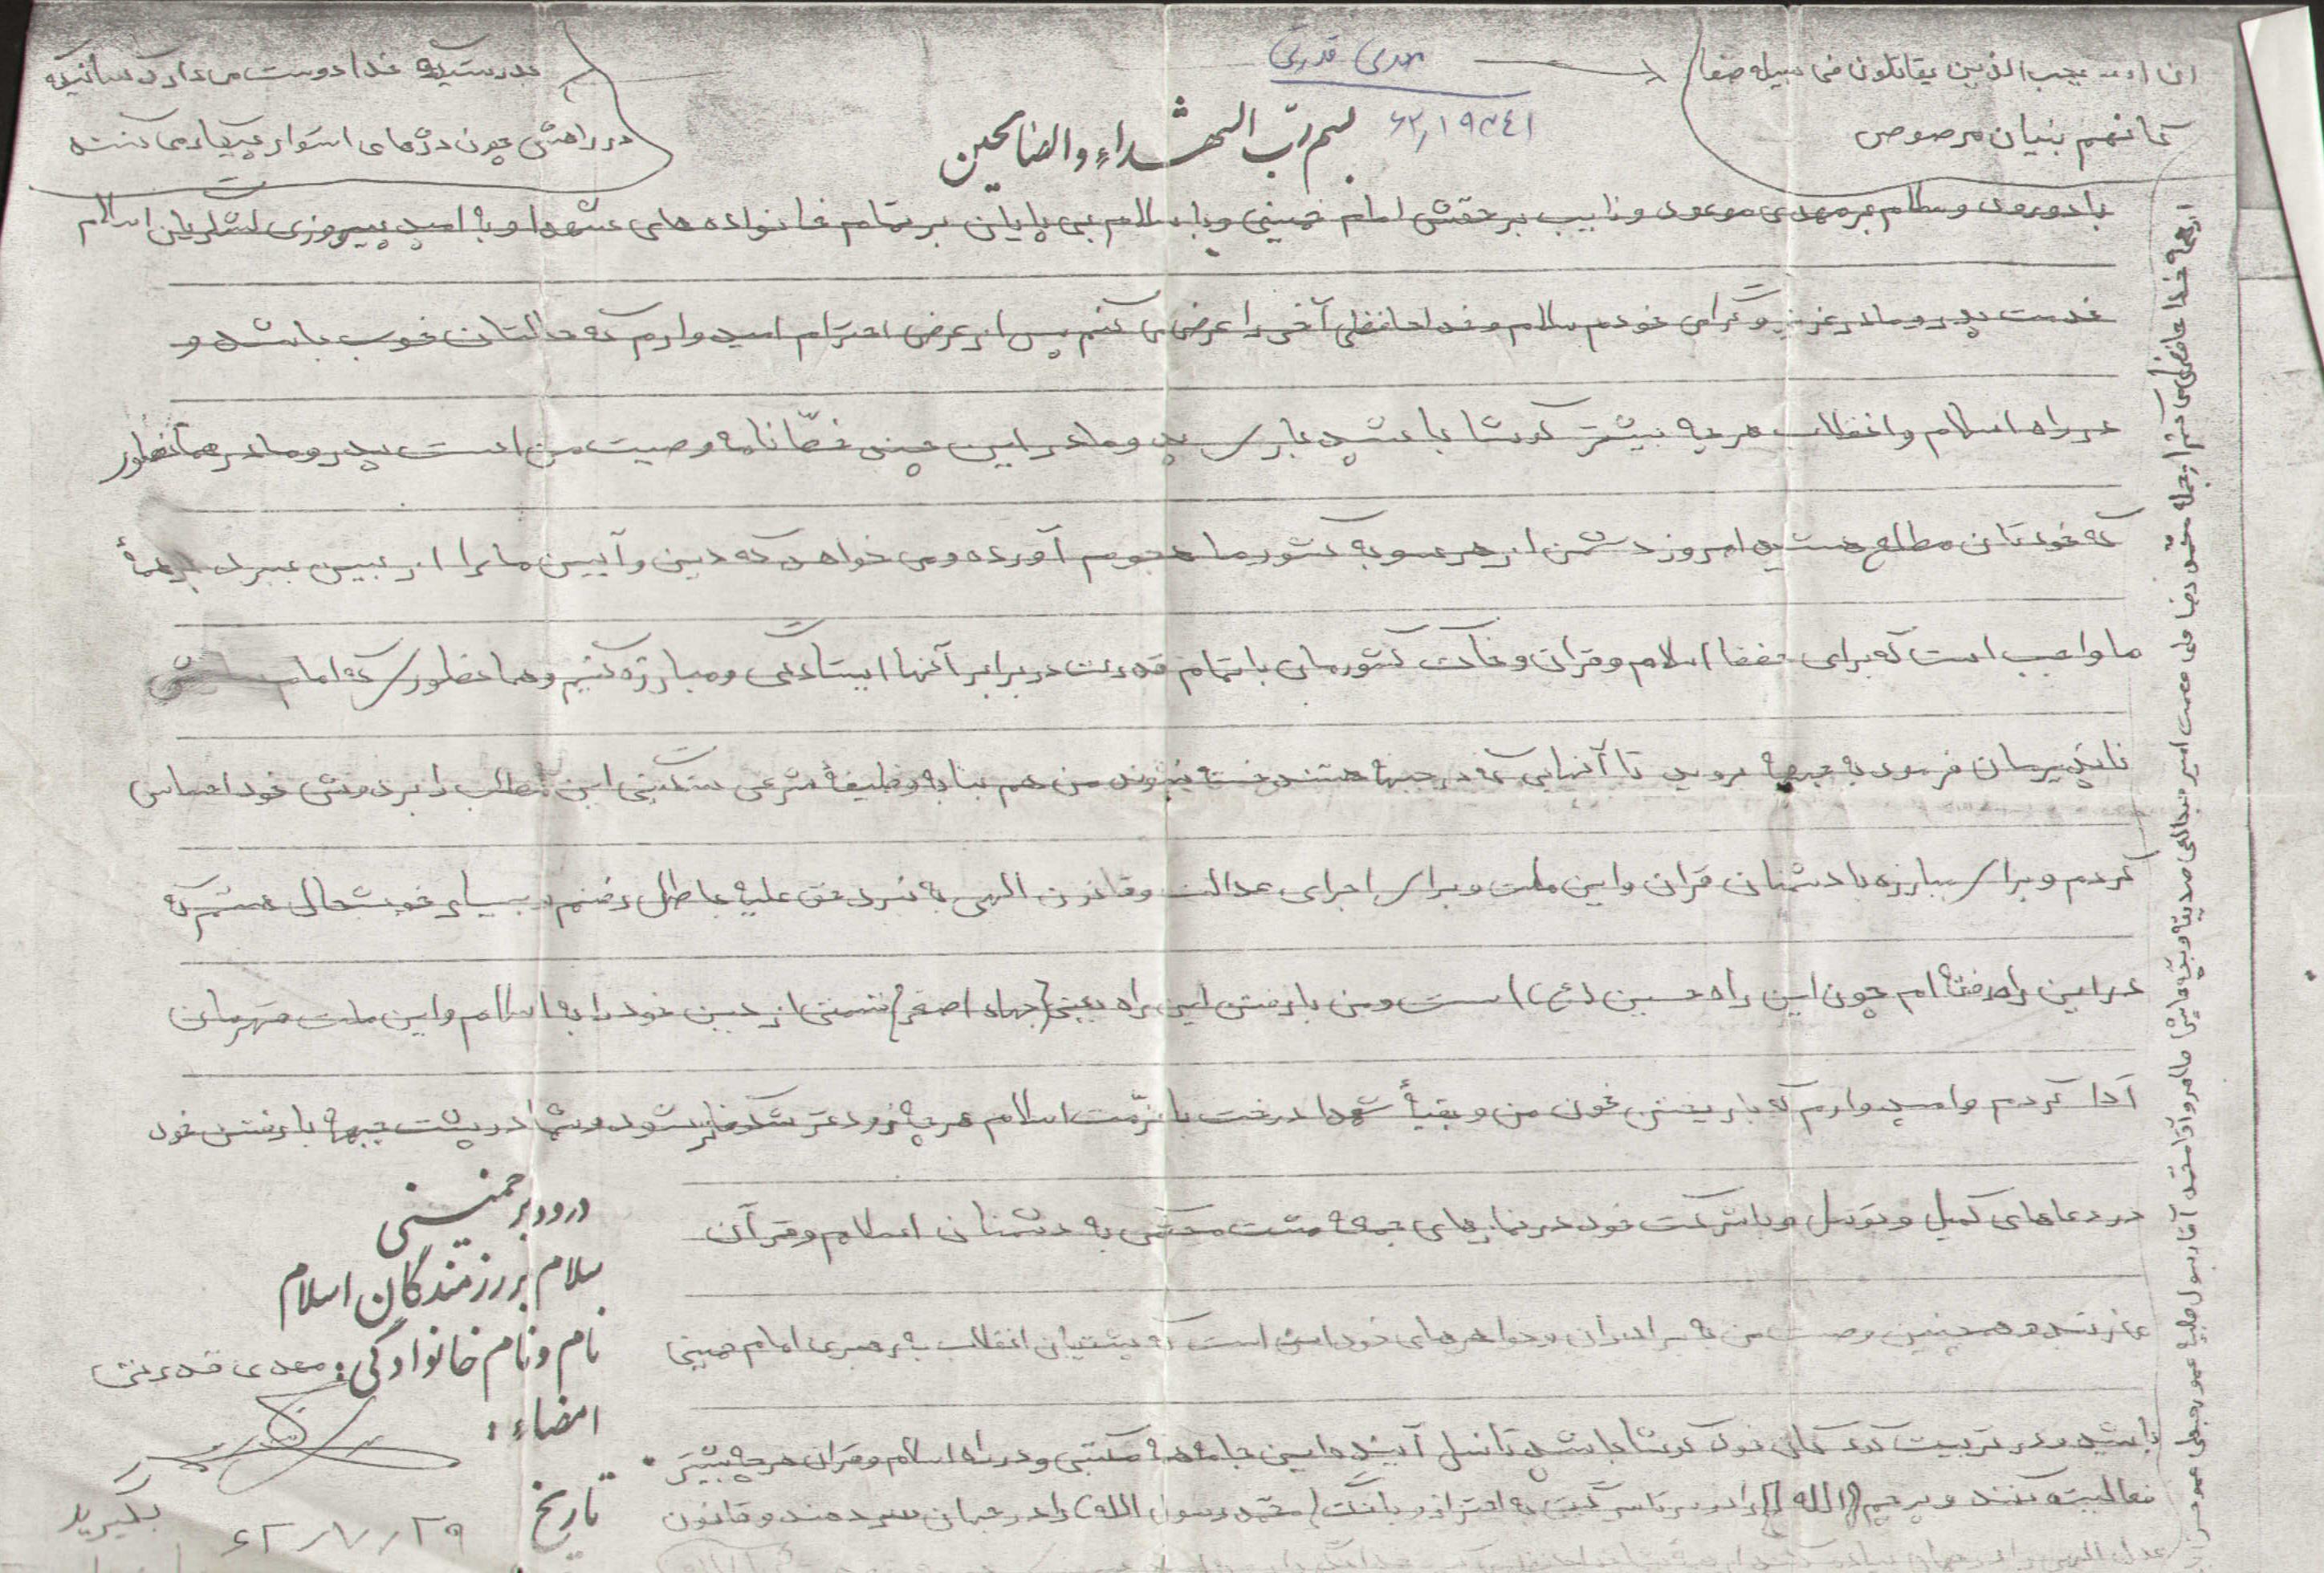 ان الله یحب الذین یقاتلون فی سبیله صفا
کانهم بنیان مرصوص
مهدی قدرتی
۶۲٫۱۹۳۴۱
بدرستیکه خدا دوست می دارد کسانیکه
در راهش چون دژهای استوار پیکار می کنند
بسم ربّ الشهداء والصالحین
با درود و سلام بر مهدی موعود و نایب بر حقش امام خمینی و با سلام بی پایان بر تمام خانواده های شهدا و با امید پیروزی لشگریان اسلام
خدمت پدر و مادر عزیز و گرامی خودم سلام و خداحافظی آخر را عرض می کنم پس از عرض احترام امیدوارم که حالتان خوب باشد و
در راه اسلام و انقلاب هر چه بیشتر کوشا باشید پدر و مادر این وصیت من است پدر و مادر همانطور
که خودتان مطلع هستید امروز دشمن از هر سو به کشور ما هجوم آورده و می خواهد که دین و آیین ما را از بین ببرد بر همهٔ
ما واجب است که برای حفظ اسلام و قران و خاک کشورمان با تمام قدرت در برابر آنها ایستادگی و مبارزه کنیم و همانطور که امام
ناپذیرمان فرمود به جبهه بروید تا آنهایی که در جبهه هستند خسته نشوند من هم بنا به وظیفهٔ شرعی سنگینی این مطلب را بر دوش خود احساس
کردم و برای مبارزه با دشمنان قران و این ملت و برای اجرای عدالت و قانون الهی به نبرد حق علیه باطل رفتم و بسیار خوشحال هستم که
در این راه رفته ام چون این راه حسین (ع) است و من با رفتن این راه یعنی (جهاد اصغر) قسمتی از دین خود را به اسلام و این ملت قهرمان
ادا کردم و امیدوارم که با ریختن خون من و بقیهٔ شهدا درخت با عزّت اسلام هر چه زودتر شکوفاتر شود و شما در پشت جبهه با رفتن خود
در دعاهای کمیل و توسل و با شرکت خود در نمازهای جمعه مشت محکمی به دشمنان اسلام و قرآن
بزنید و همچنین وصیت من به برادران و خواهرهای خود این است که پشتیبان انقلاب به رهبری امام خمینی
باشید و در تربیت کودکان خود کوشا باشید تا نسل آینده این جامعه مکتبی و در راه اسلام و قران هر چه بیشتر
فعالیت کنند و پرچم (الله) را در سرتاسر گیتی به اهتزاز و بانگ (محمد رسول الله) را در جهان سر دهند و قانون
درود بر خمینی
سلام بر رزمندگان اسلام
نام و نام خانوادگی: مهدی قدرتی
امضاء:
تاریخ ۶۲/۷/۲۹
بگیرید
از همه خدا حافظی می کنم از جمله